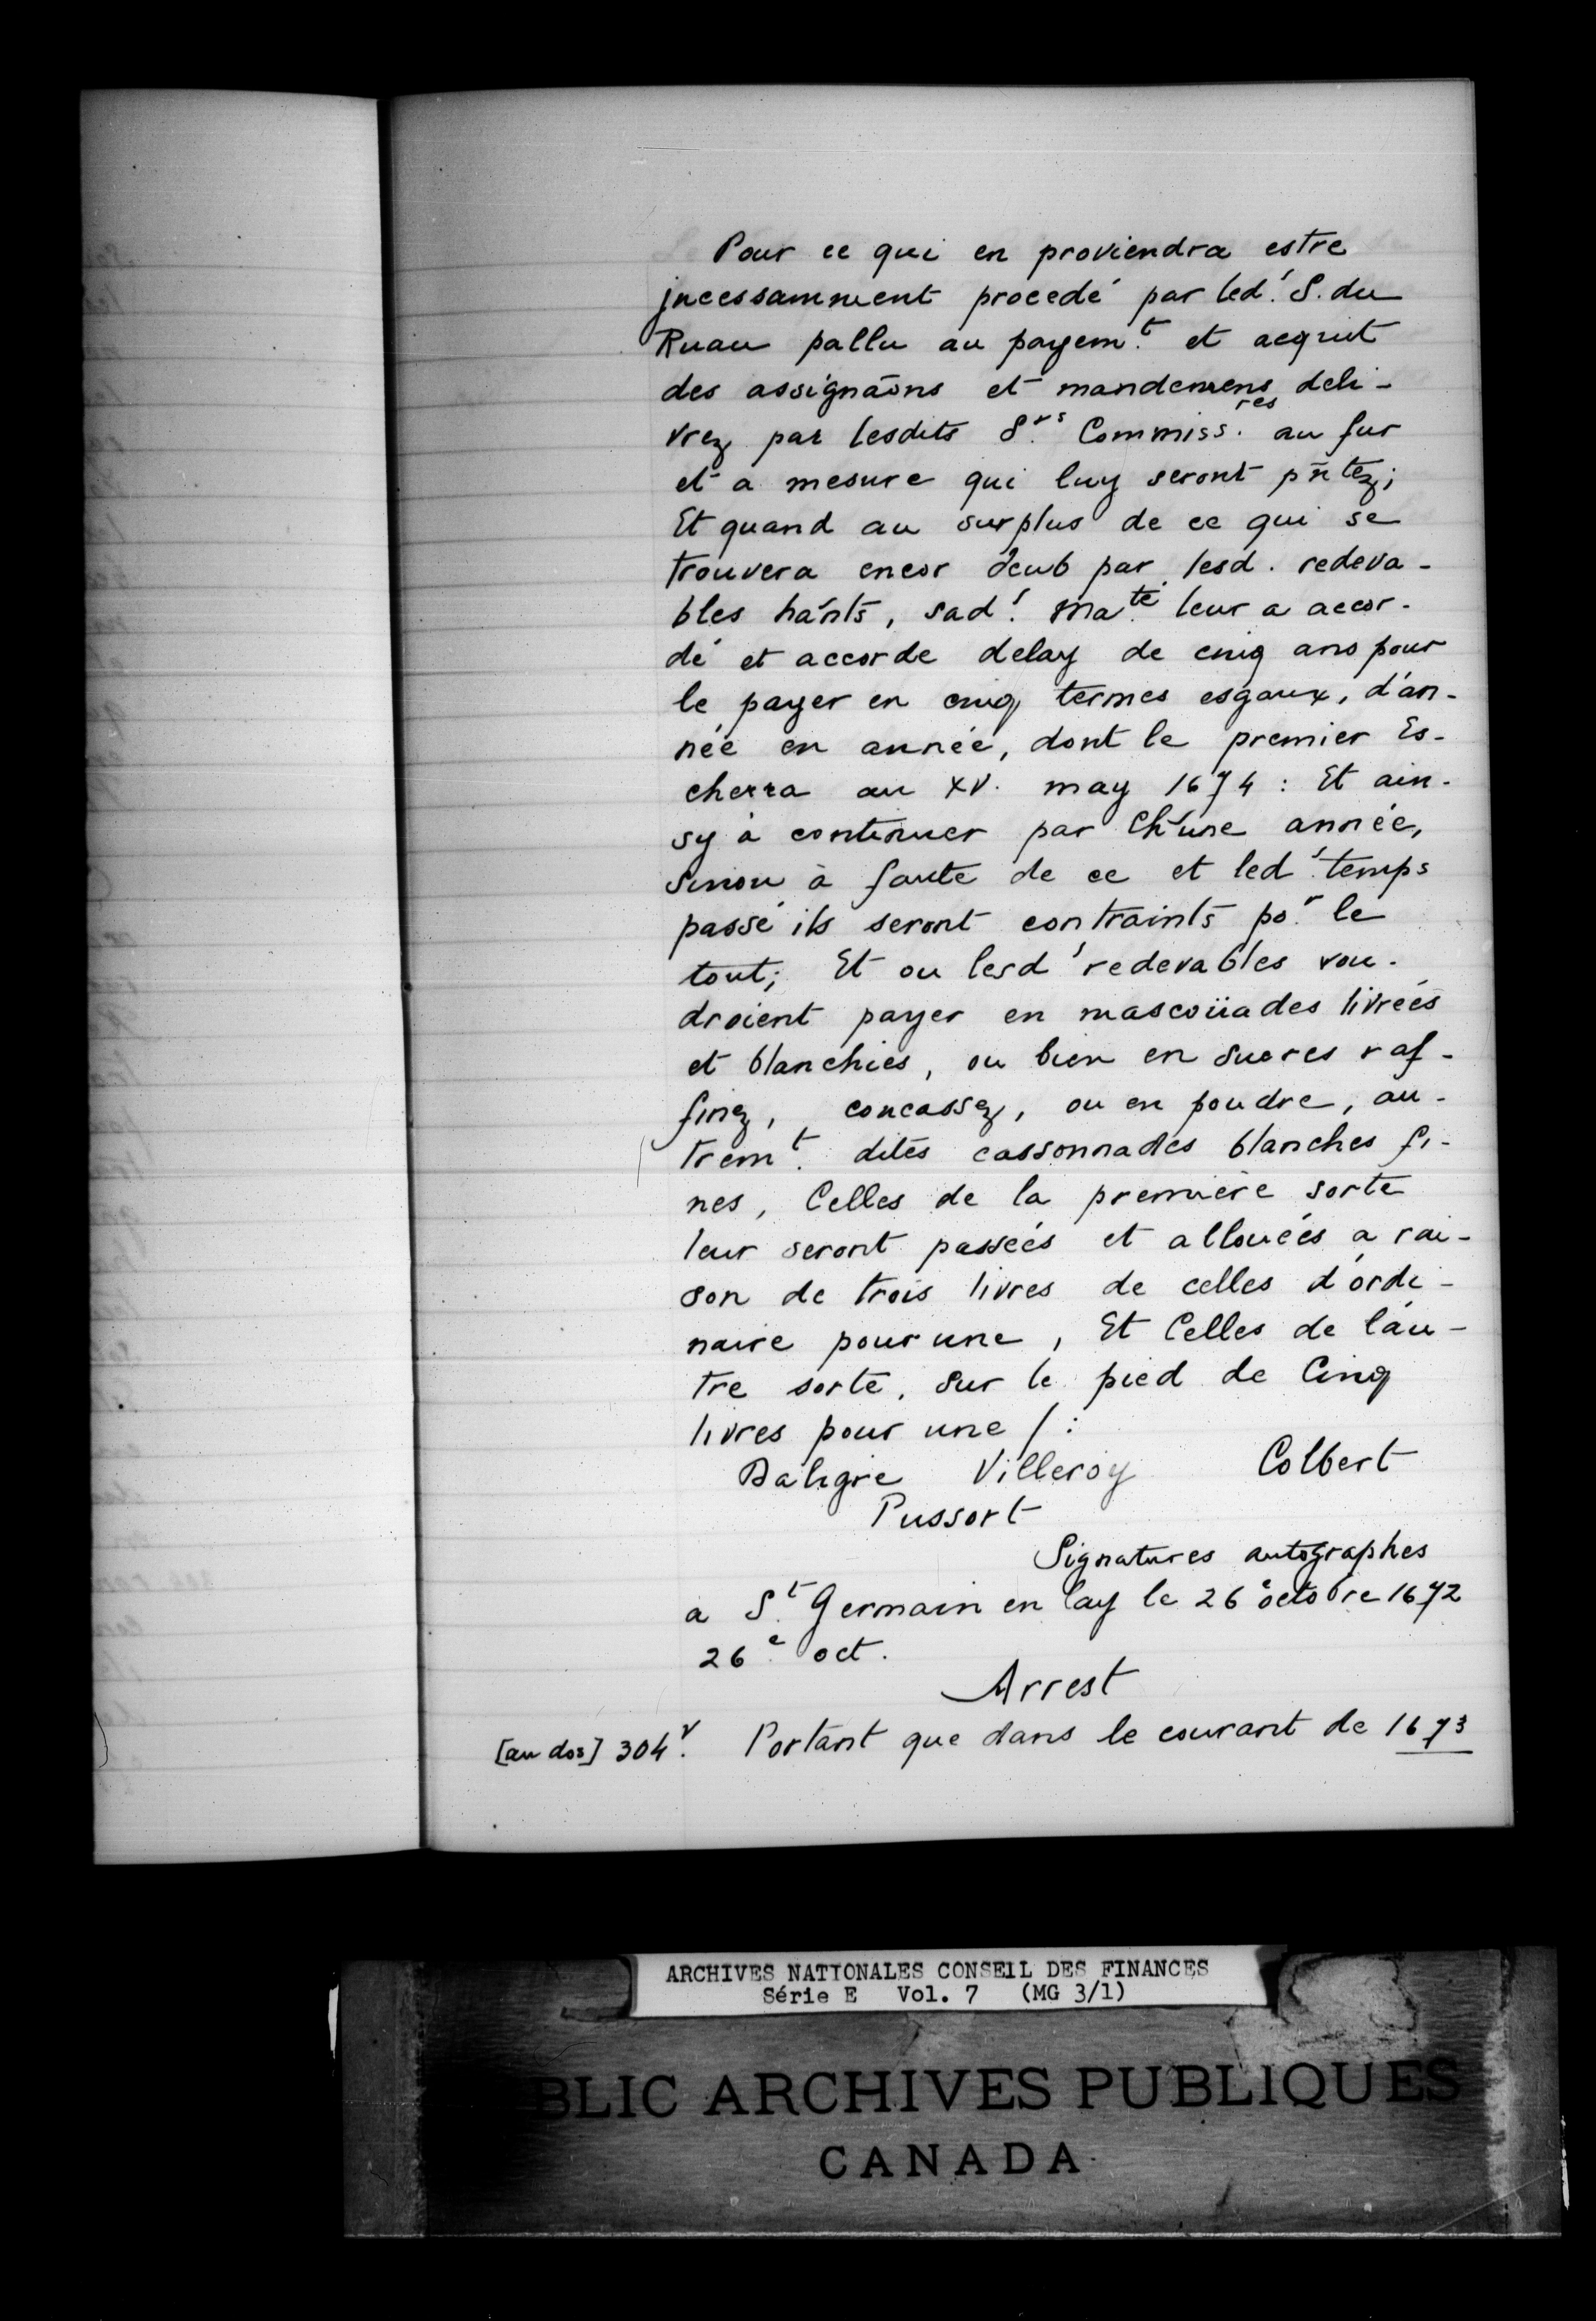 Pour ce qui en proviendra estre
jncessamment procedé par led.' S. du
Ruau pallu au payem.t et acquit
des assignāons et mandemens deli-
vrez par lesdits S.rs Commiss.res au fur
et a mesure qui luy seront pñtez;
Et quand au surplus de ce qui se
trouvera encor deub par lesd. redeva-
bles hãnts, sad.' Ma.té leur a accor-
dé et accorde delay de cinq ans pour
le payer en cinq termes esgaux, d'an-
née en année, dont le premier Es-
cherra au XV. may 1674 : Et ain-
sy à continuer par Ch'une année,
Sinon à faute de ce et led.' temps
passé ils seront contraints po.r le
tout; Et ou lesd' redevables vou-
droient payer en mascoüades livrées
et blanchies, ou bien en sucres raf-
finez, concassez, ou en poudre, au-
trem.t dites cassonnades blanches fi-
nes, Celles de la première sorte
leur seront passées et allouées a rai-
son de trois livres de celles d'ordi-
naire pour une, Et Celles de l'au-
tre sorte, sur le pied de Cinq
livres pour une /:
Daligre Villeroy Colbert
Pussort
Signatures autographes
a S.t Germain en lay le 26e octobre 1672
26.e oct.
Arrest
[au dos] 304.v Portant que dans le courant de 1673
ARCHIVES NATIONALES CONSEIL DES FINANCES
Série E Vol. 7 (MG 3/1)
BLIC ARCHIVES PUBLIQUES
CANADA